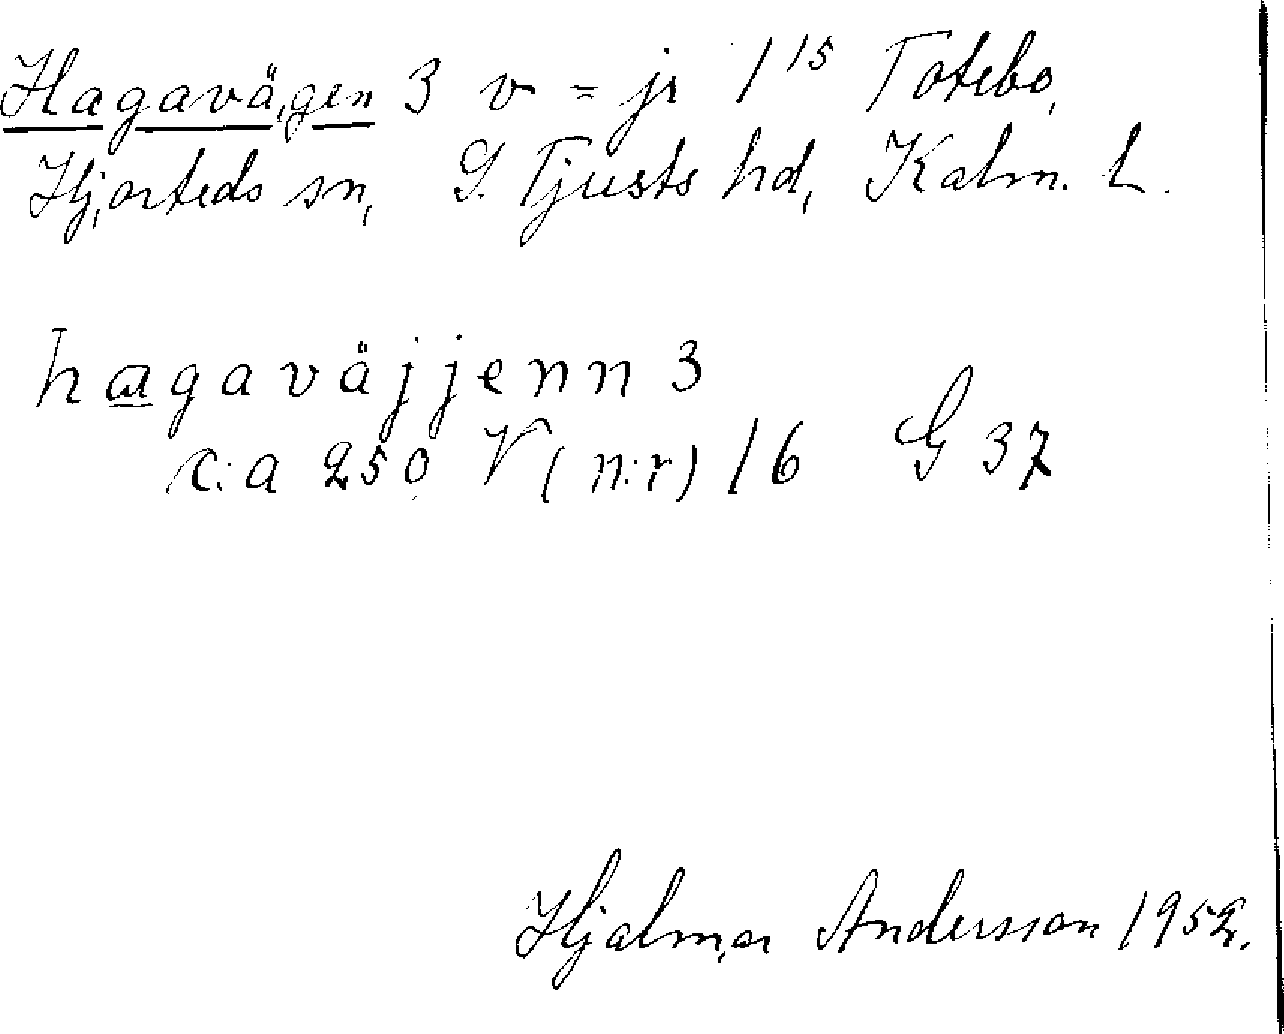 Hagavägen 3 v = jr 1 15 Totebo,
Hjorteds sn, S. Tjusts hd, Kalm. L.
hagaväjjenn 3
c:a 250 V (n:r) 16 G 37
Hjalmar Andersson 1952.